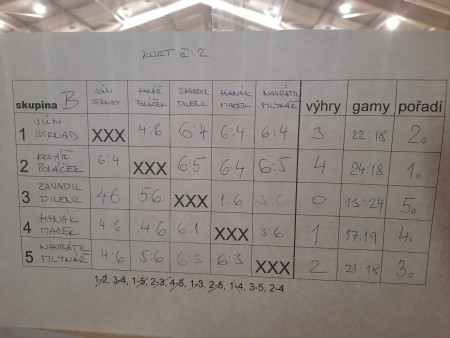 KURT č 2
skupina B JŮN STRNAD KOLÁŘ POLÁČEK ZAVADIL DILENZ HANÁK MACEK NAVRÁTIL MLYNÁŘ výhry gamy pořadí
1 JŮN STRNAD XXX 4:6 6:4 6:4 6:4 3 22:18 2.
2 KOLÁŘ POLÁČEK 6:4 XXX 6:5 6:4 6:5 4 24:18 1.
3 ZAVADIL DILENZ 46 56 XXX 1:6 3:6 0 13:24 5.
4 HANÁK MACEK 4:6 46 6:1 XXX 3:6 1 17:19 4.
5 NAVRÁTIL MLYNÁŘ 4:6 5:6 6:3 6:3 XXX 2 21:18 3.
1-2, 3-4, 1-5, 2-3, 4-5, 1-3, 2-5, 1-4, 3-5, 2-4